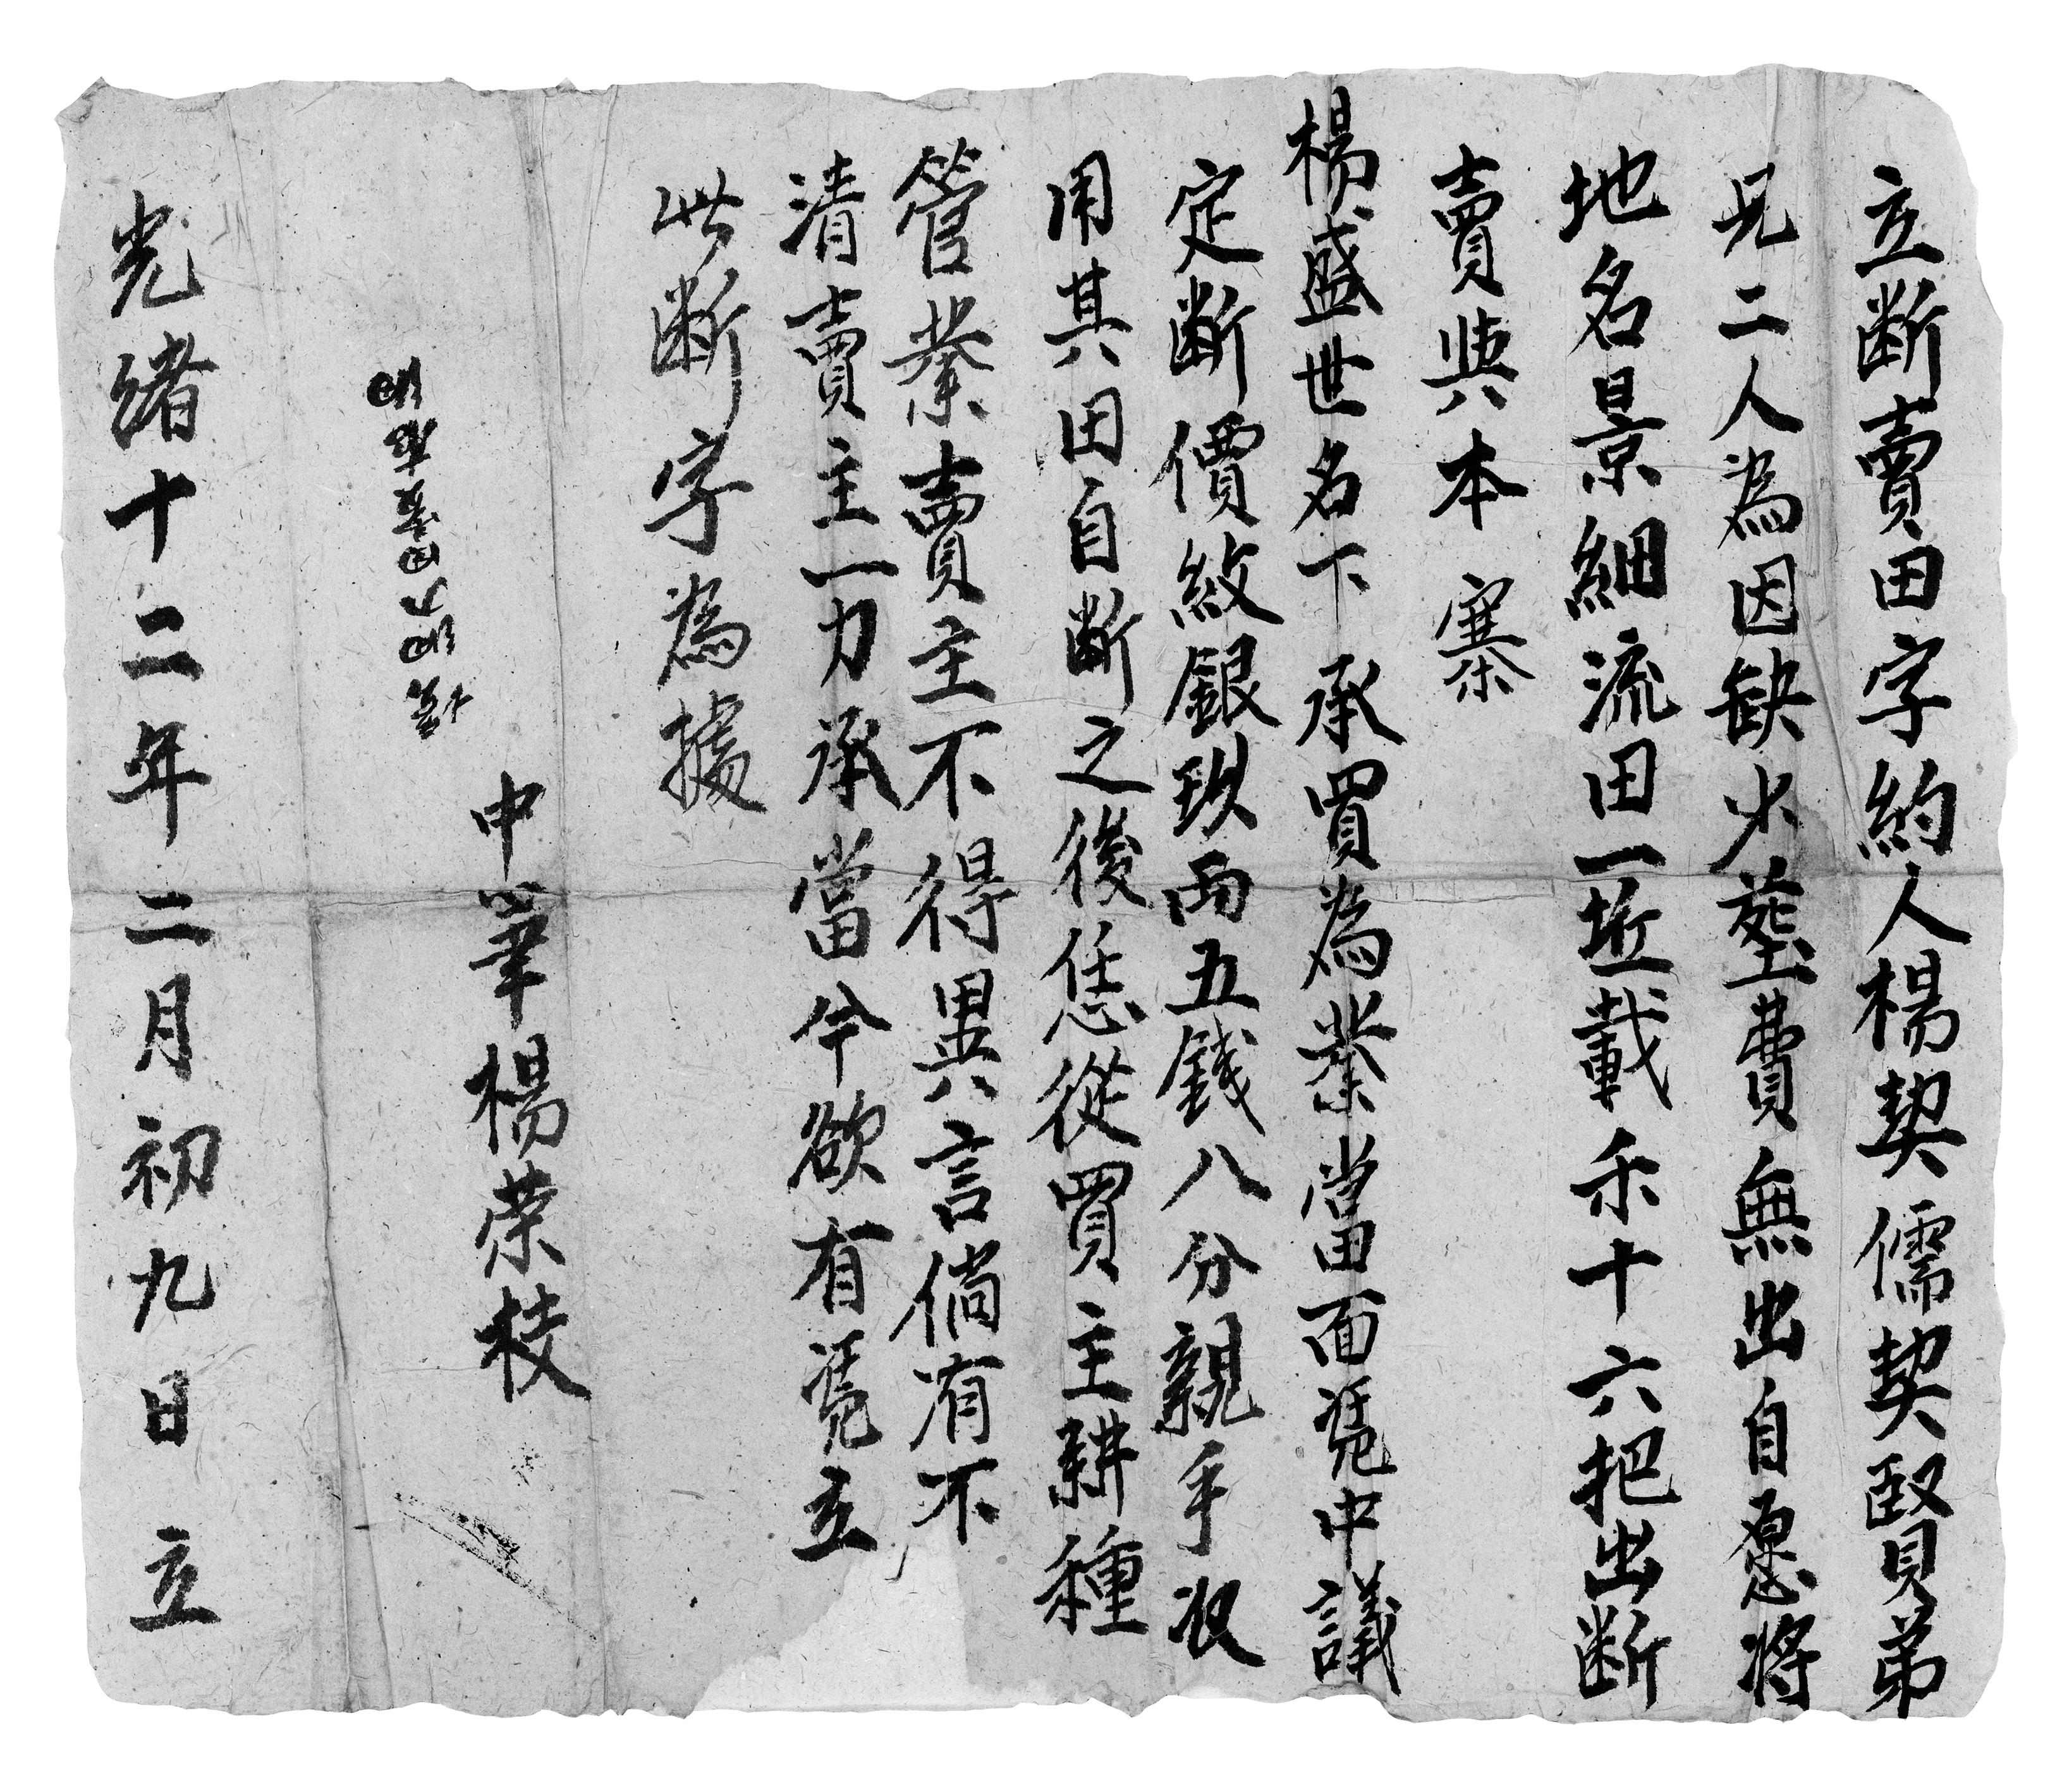 立断賣田字約人楊契儒契賢弟
兄二人為因缺少塟費無出自愿將
地名景細流田一坵載禾十六把出断
賣與本寨
楊盛世名下承買為業當面凴中議
定断價紋銀玖両五錢八分親手収
用其田自断之後恁從買主耕種
管業賣主不得異言倘有不
清賣主一力承當今欲有凴立
此断字為據
中筆楊荣枝
光緒十二年二月初九日立